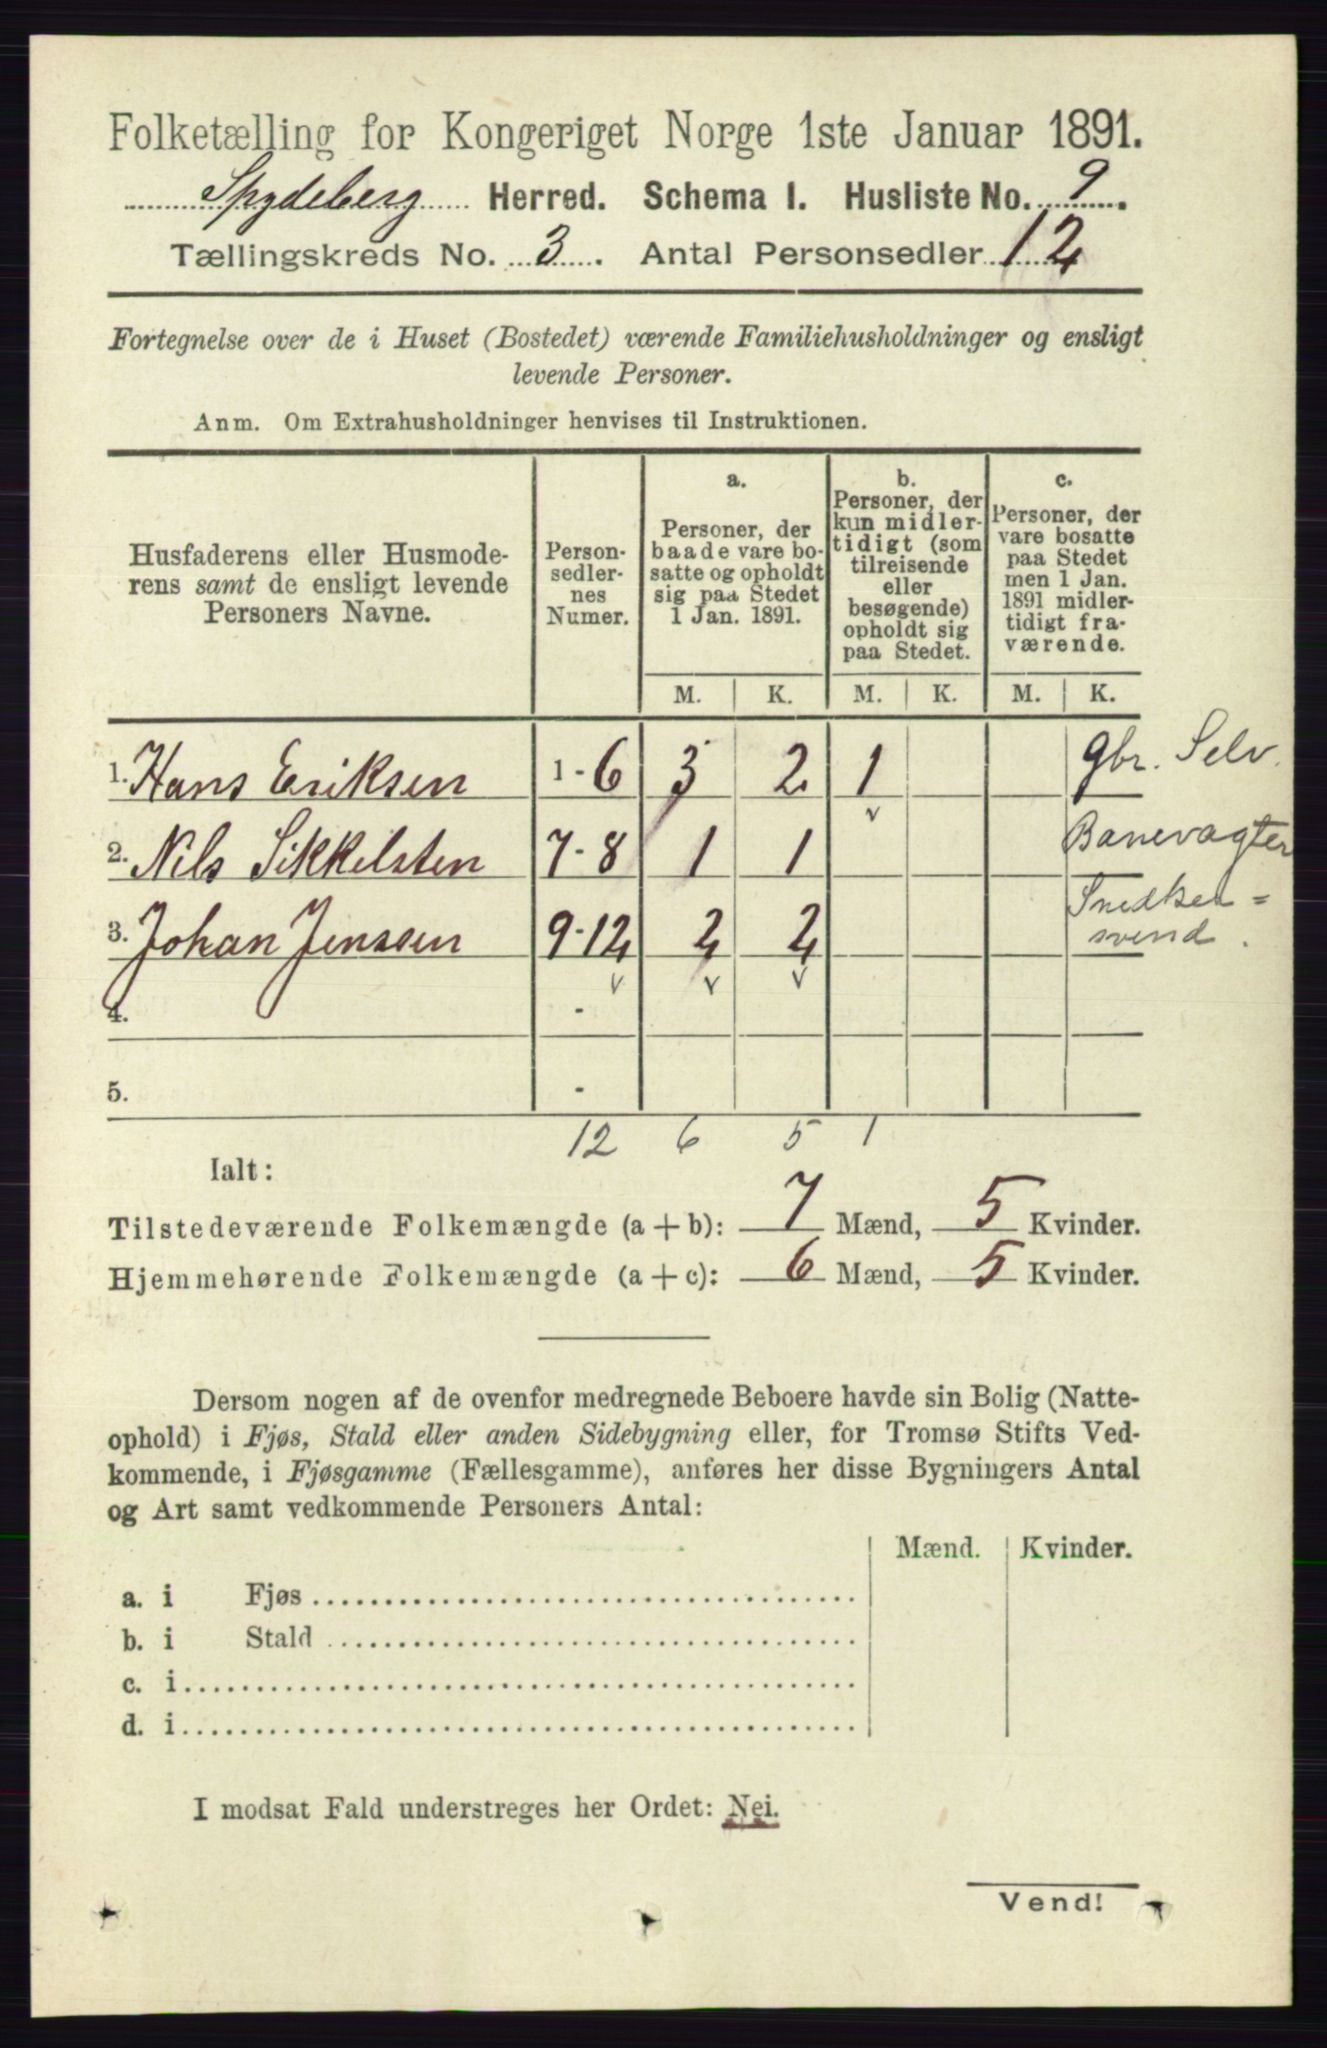 Folketælling for Kongeriget Norge 1ste Januar 1891.
Spydeberg Herred. Schema I. Husliste No. 9.
Tællingskreds No. 3. Antal Personsedler 12
Fortegnelse over de i Huset (Bostedet) værende Familiehusholdninger og ensligt
levende Personer.
Anm. Om Extrahusholdninger henvises til Instruktionen.
Husfaderens eller Husmode-
rens samt de ensligt levende
Personers Navne.
Person-
sedler-
nes
Numer.
a.
Personer, der
baade vare bo-
satte og opholdt
sig paa Stedet
1 Jan. 1891.
b.
Personer, der
kun midler-
tidigt (som
tilreisende
eller
besøgende)
opholdt sig
paa Stedet.
c.
Personer, der
vare bosatte
paa Stedet
men 1 Jan.
1891 midler-
tidigt fra-
værende.
M. K. M. K. M. K.
1. Hans Eriksen 1-6 3 2 1 gbr. Selv.
2. Nils Sikkelsten 7-8 1 1 Banevagter
3. Johan Jenssen 9-12 2 2 Snedker=
svend.
4. -
5. -
12 6 5 1
Ialt:
Tilstedeværende Folkemængde (a + b): 7 Mænd, 5 Kvinder.
Hjemmehørende Folkemængde (a + c): 6 Mænd, 5 Kvinder.
Dersom nogen af de ovenfor medregnede Beboere havde sin Bolig (Natte-
ophold) i Fjøs, Stald eller anden Sidebygning eller, for Tromsø Stifts Ved-
kommende, i Fjøsgamme (Fællesgamme), anføres her disse Bygningers Antal
og Art samt vedkommende Personers Antal:
Mænd. Kvinder.
a. i Fjøs
b. i Stald
c. i
d. i
I modsat Fald understreges her Ordet: Nei.
Vend!